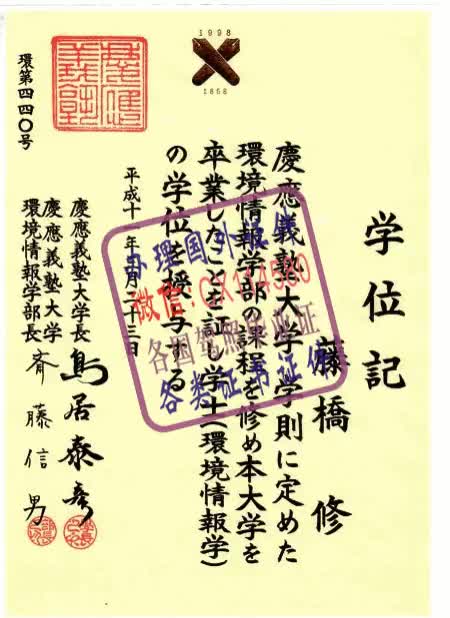 学位記
藤橋 修
慶應義塾大学学則に定めた
環境情報学部の課程を修め本大学を
卒業したことを証し学士(環境情報学)
の学位を授与する
平成十一年三月二十三日
慶應義塾大学長 鳥居泰彦
慶應義塾大学
環境情報学部長 斉藤信男
環第四四〇号
1998
1858
办理国外
微信:
各国驾照
证
各类证书证件